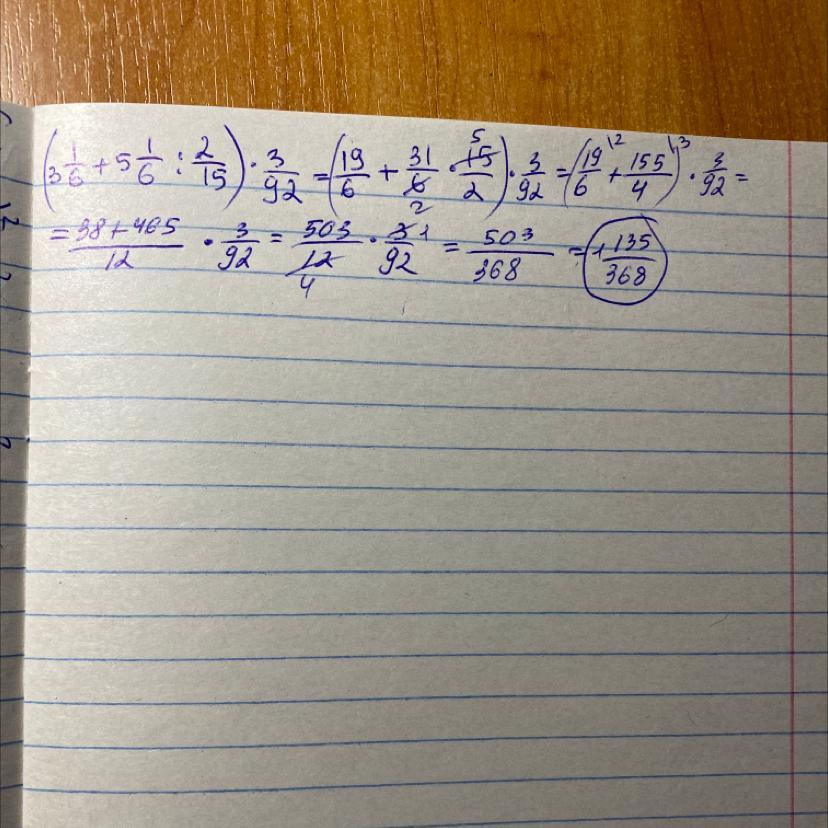 (3 1/6 + 5 1/6 : 2/15) · 3/92 = (19/6 + 31/6 2 · 5 15/2) · 3/92 = (19/6 \2 + 155/4 \3) · 3/92 =
= 38+465/12 · 3/92 = 503/12 4 · 3 1/92 = 503/368 = 1 135/368